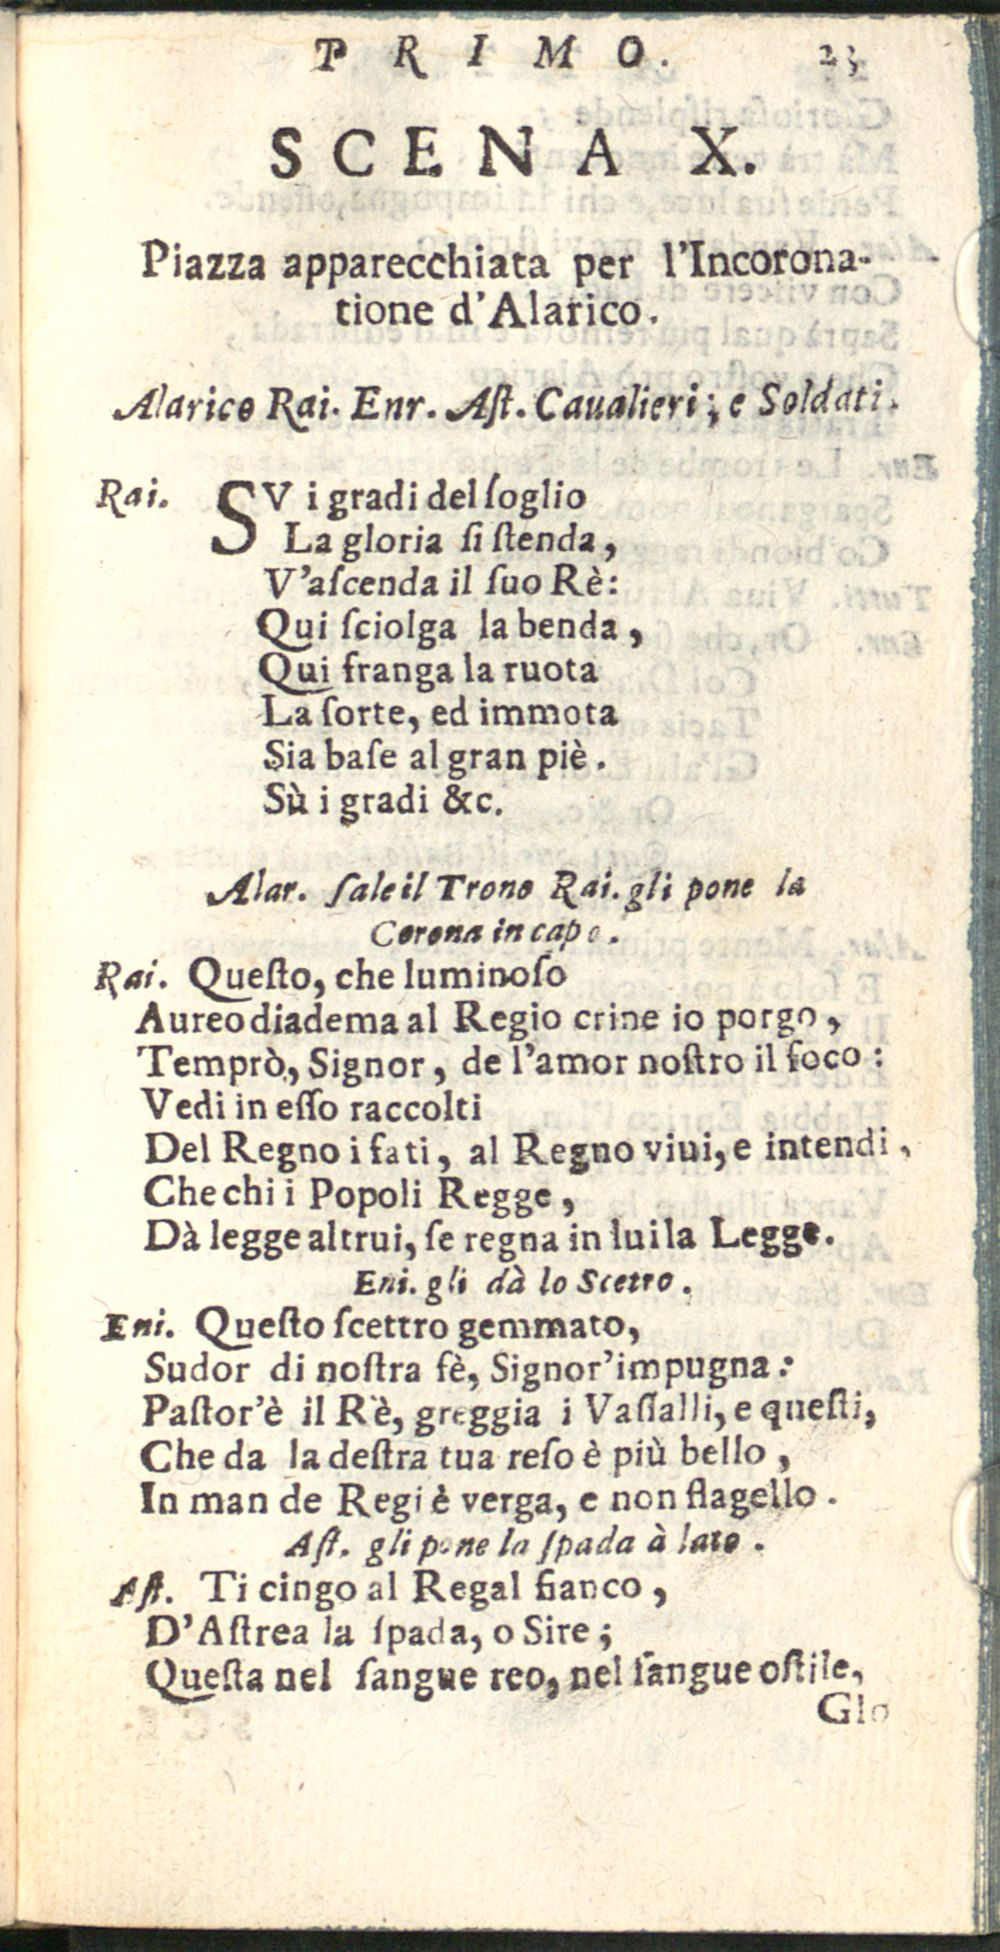 PRIMO. 23
SCENA X.
Piazza apparecchiata per l'Incorona-
tione d'Alarico.
Alarico Rai. Enr. Aſt. Caualieri; e Soldati.
Rai. SV i gradi del ſoglio
La gloria ſi ſtenda,
V'aſcenda il ſuo Rè:
Qui ſciolga la benda,
Qui franga la ruota
La ſorte, ed immota
Sia baſe al gran piè.
Sù i gradi &c.
Alar. ſale il Trono Rai. gli pone la
Corona in capo.
Rai. Queſto, che luminoſo
Aureo diadema al Regio crine io porgo,
Temprò, Signor, de l'amor noſtro il foco:
Vedi in eſſo raccolti
Del Regno i fati, al Regno viui, e intendi,
Che chi i Popoli Regge,
Dà legge altrui, ſe regna in lui la Legge.
Eni. gli dà lo Scetro.
Eni. Queſto ſcettro gemmato,
Sudor di noſtra fè, Signor'impugna:
Paſtor'è il Rè, greggia i Vaſſalli, e queſti,
Che da la deſtra tua reſo è più bello,
In man de Regi è verga, e non flagello.
Aſt. gli pone la ſpada à lato.
Aſt. Ti cingo al Regal fianco,
D'Aſtrea la ſpada, o Sire;
Queſta nel ſangue reo, nel ſangue oſtile,
Glo